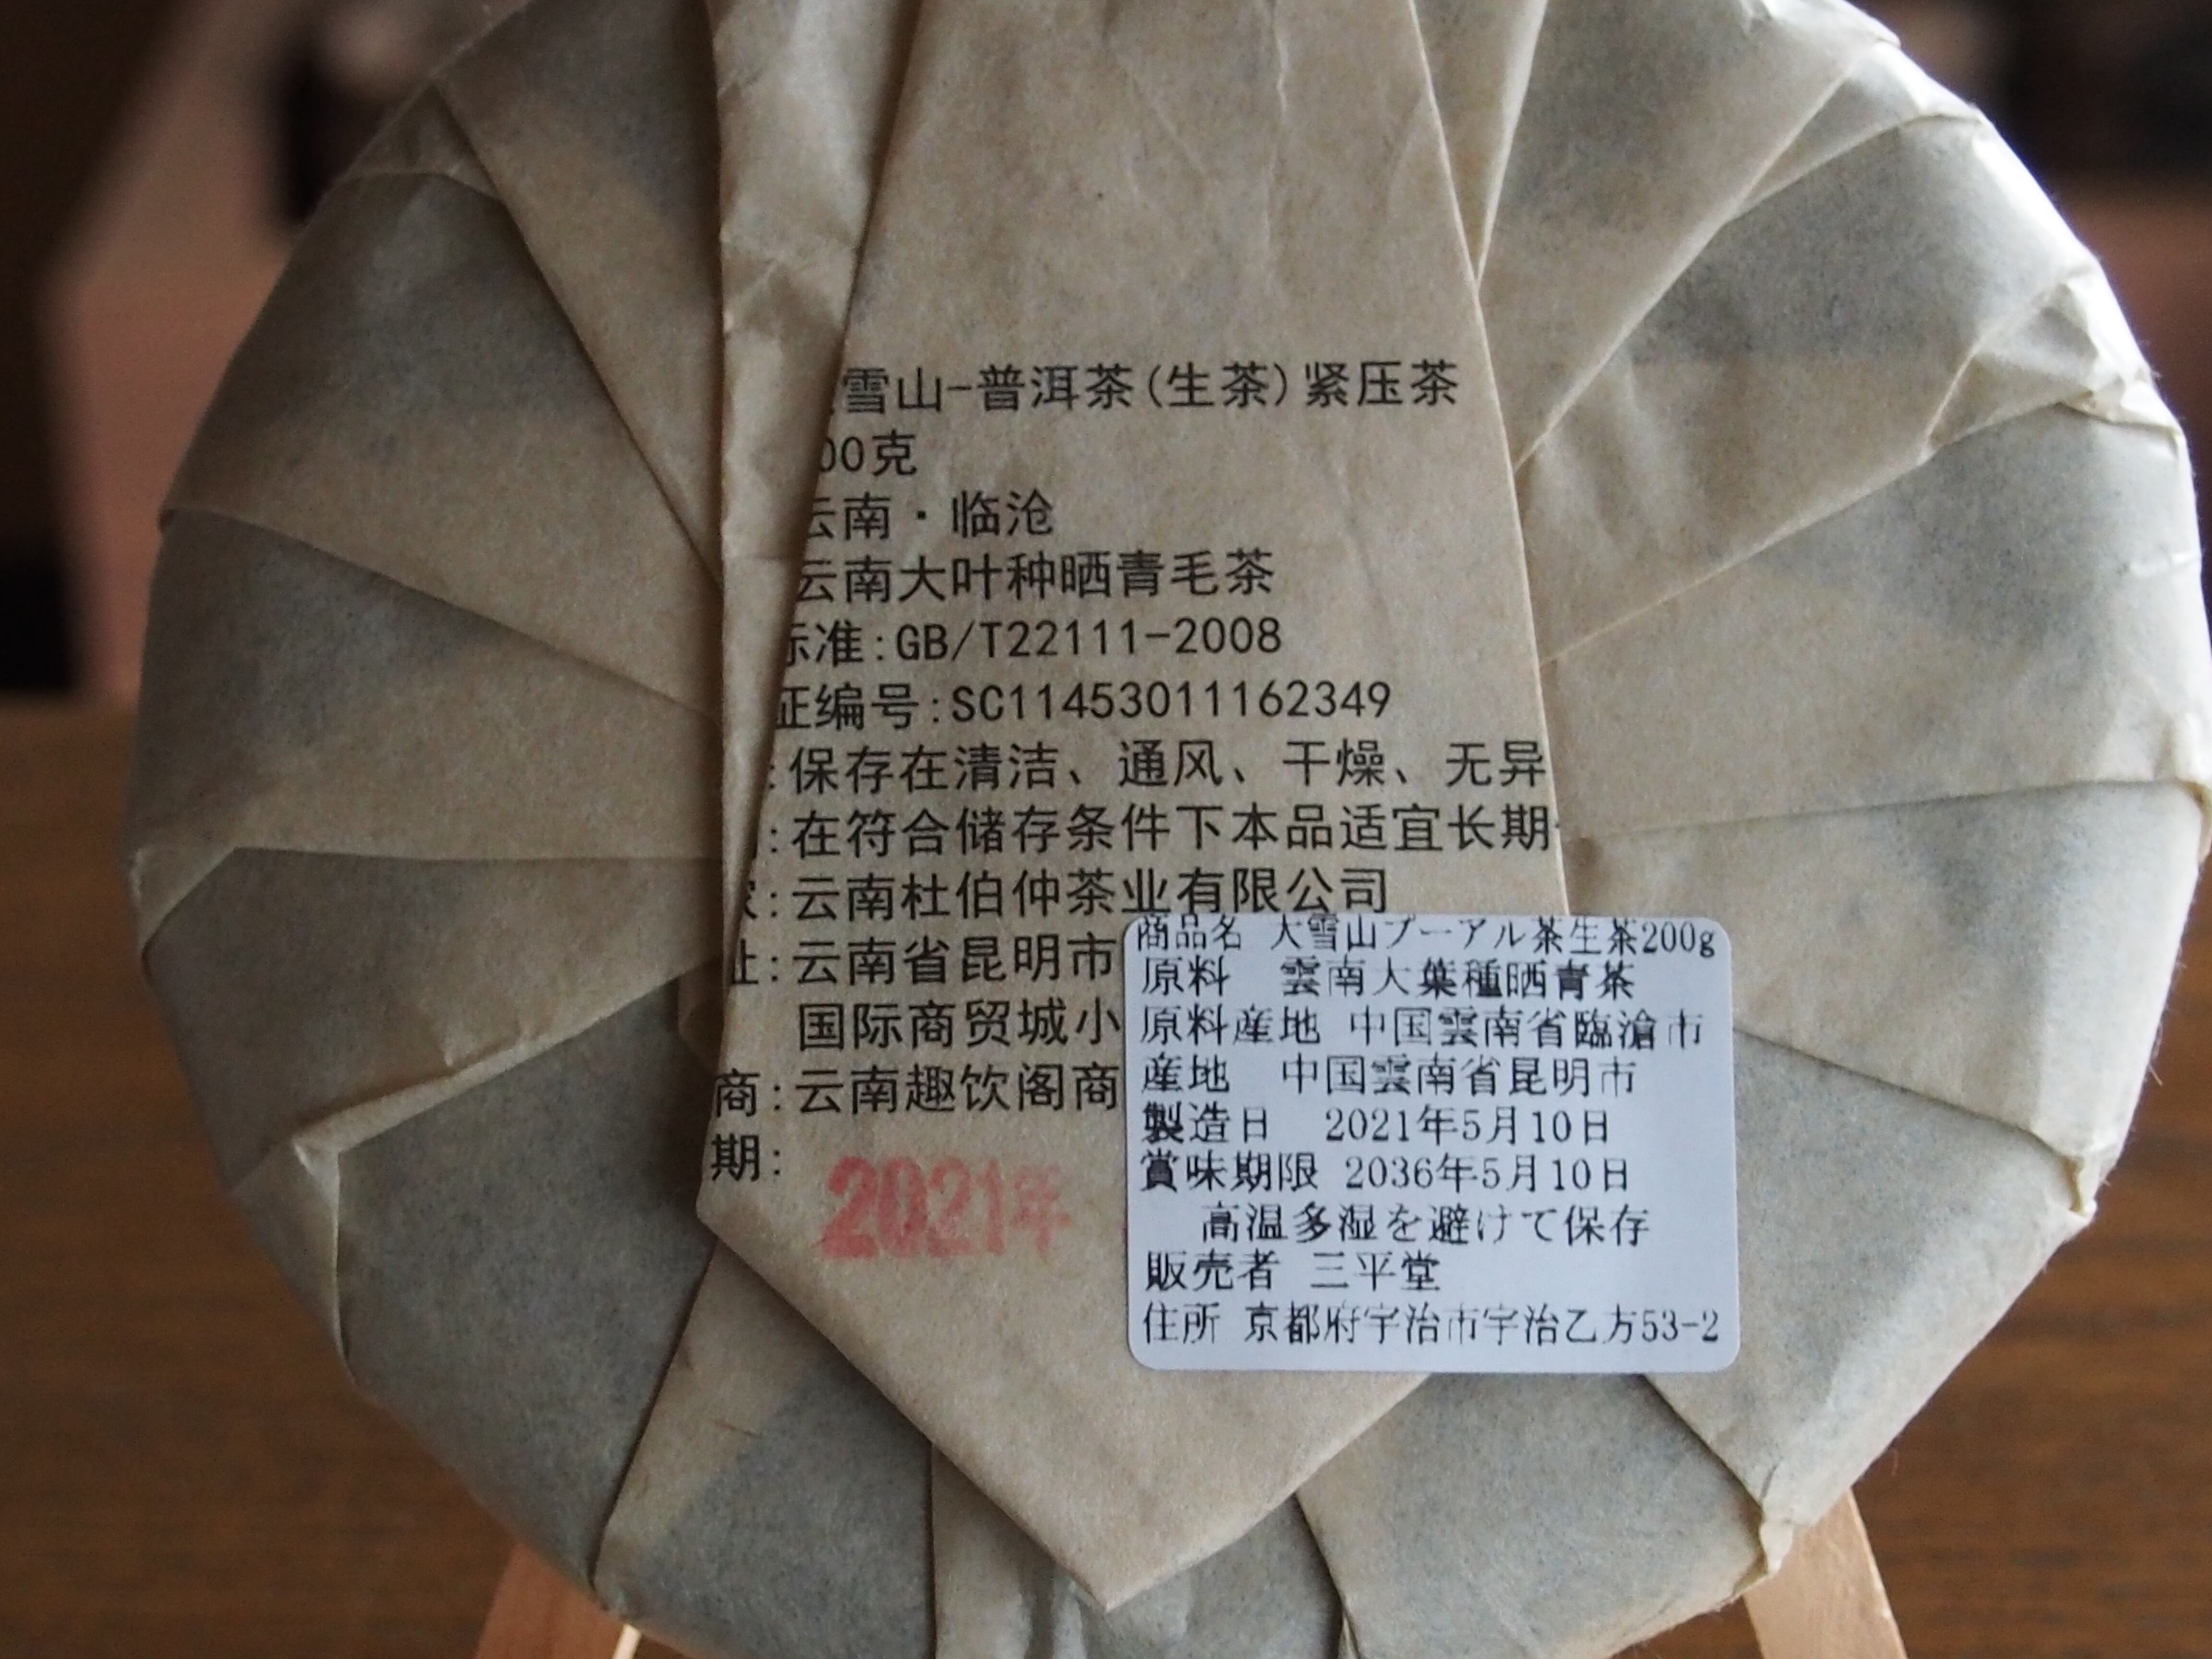 雪山-普洱茶(生茶)紧压茶
00克
云南·临沧
云南大叶种晒青毛茶
标准:GB/T22111-2008
证编号:SC11453011162349
:保存在清洁、通风、干燥、无异
:在符合储存条件下本品适宜长期
:云南杜伯仲茶业有限公司
址:云南省昆明市
国际商贸城小
商:云南趣饮阁商
期:
2021年
商品名 大雪山プーアル茶生茶200g
原料 雲南大葉種晒青茶
原料産地 中国雲南省臨滄市
産地 中国雲南省昆明市
製造日 2021年5月10日
賞味期限 2036年5月10日
高温多湿を避けて保存
販売者 三平堂
住所 京都府宇治市宇治乙方53-2